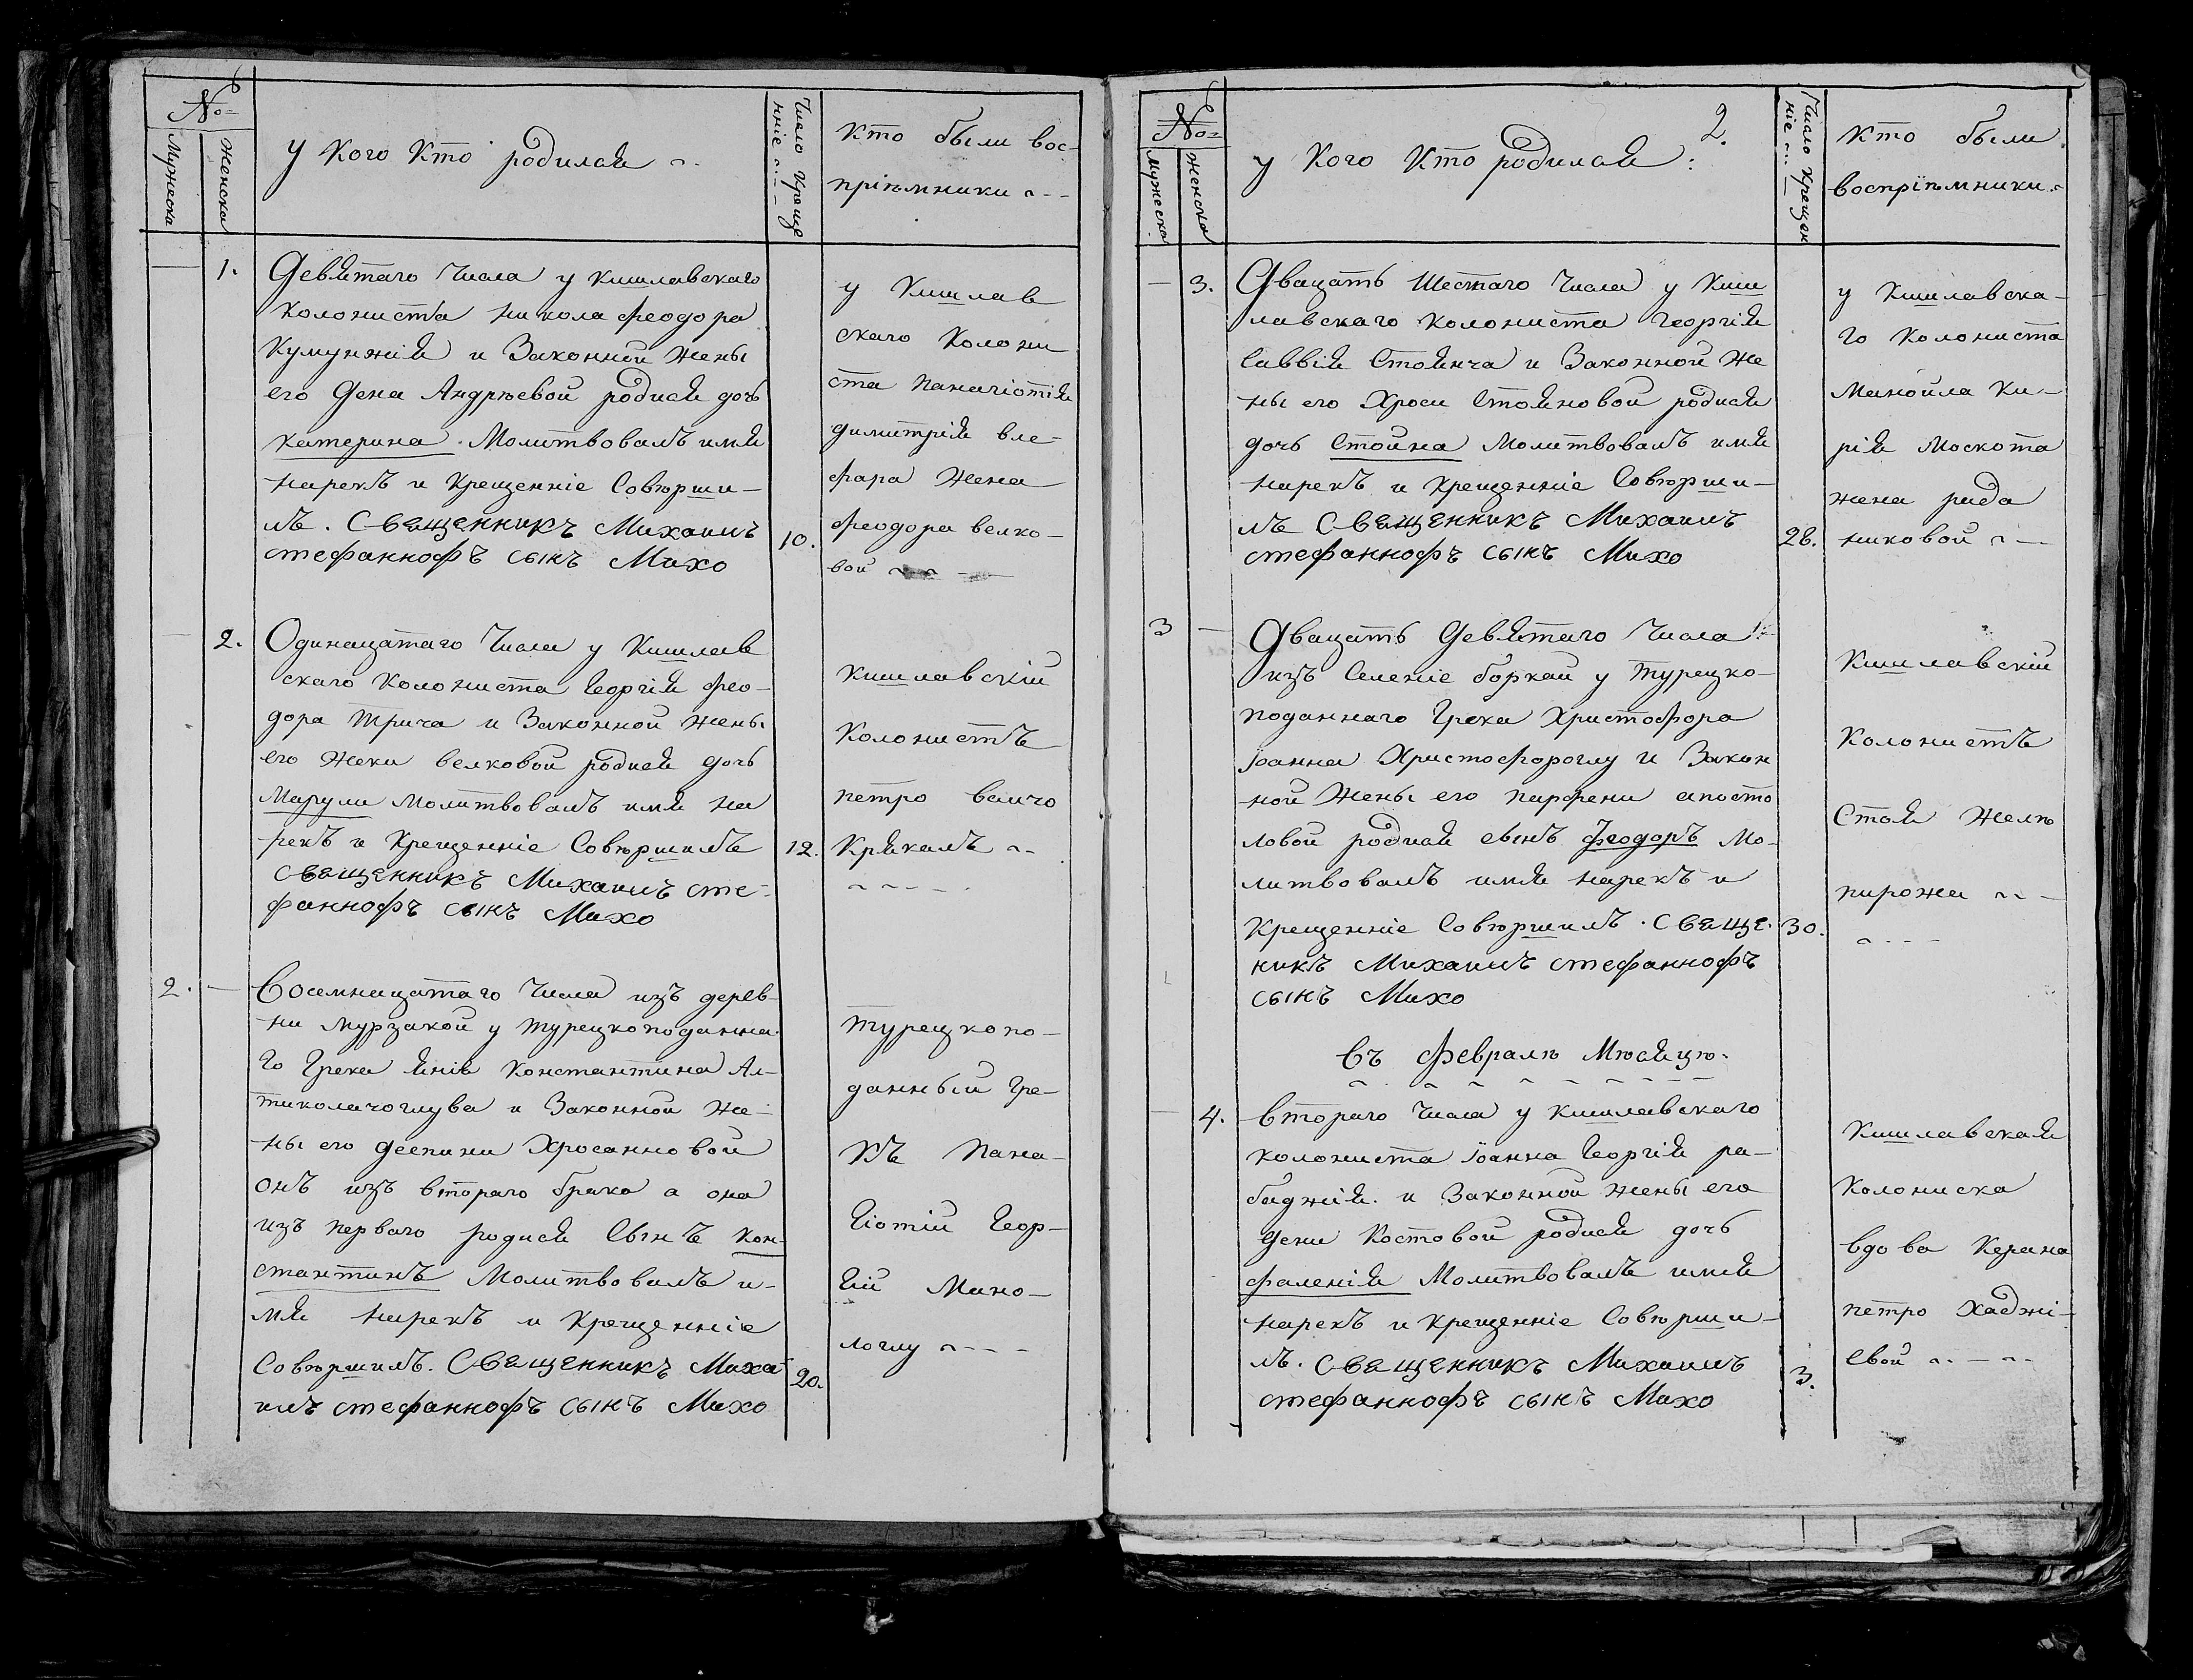 №
Мужеска
Женска
у кого кто родился
Число Креще
ніе
Кто были вос-
пріѣмники
1.
Девятаго Числа у Кишлавскаго
Колониста Никола Феодора
Кумунжія и Законной Жены
его Дена Андрѣевой родися дочь
Катерина. Молитвовалъ имя
нарекъ и Крещенніе Совѣрши-
лъ. Священникъ Михаилъ
стефаннофъ сынъ Михо
10.
у Кишлав
скаго Колони
ста Панагіотія
димитрія вле-
фара Жена
Феодора велко-
вой
2.
Одинацатаго Числа у Кишлав
скаго Колониста Георгія Фео-
дора Трича и Законной Жены
его Жеки велковой родися дочь
Марули Молитвовалъ имя на
рекъ и Крещенніе Совѣршилъ
Священникъ Михаилъ сте-
фаннофъ сынъ Михо
12.
Кишлавскій
Колонистъ
петро вличо
Крякалъ
2.
Восемнацатаго Числа изъ дерев-
ни Мурзакой у турецкоподанна-
го Грека Янія Константина Ал-
тиколачоглува и Законной Же-
ны его Деспини Хросанновой
онъ изъ втораго брака а она
изъ перваго родися Сынъ Кон-
стантинъ Молитвовалъ и-
мя нарекъ и Крещенніе
Совѣршилъ. Священникъ Миха
илъ стефаннофъ сынъ Михо
20.
турецкопо-
данный Гре-
къ Пана-
гіотій Геор-
гій Мано-
логлу
№
Мужеска
Женска
у Кого Кто родился:
2.
Число Крещен
ніе
Кто были
воспріѣмники
3.
Двацать Шестаго Числа у Киш
лавскаго Колониста Георгія
Саввія Стоянча и Законной Же
ны его Хроси Стояновой родися
дочь Стойна Молитвовалъ имя
нарекъ и Крещенніе Совѣрши-
лъ Священникъ Михаилъ
стефаннофъ сынъ Михо
28.
у Кишлавска-
го Колониста
Манойла Ки-
рія Москота
жена рада
никовой
3
Двацать Девятаго Числа
изъ Селеніе боркай у Турецко-
поданнаго Грека Христофора
Іоанна Христофороглу и Закон
ной Жены его парфени апосто
ловой родися сынъ Феодоръ Мо-
литвовалъ имя нарекъ и
Крещенніе Совѣршилъ. Священ-
никъ Михаилъ стефаннофъ
сынъ Михо
30.
Кишлавскій
Колонистъ
Стоя Желѣ
пирожа
Въ Февралѣ Мѣсяцѣ.
4.
Втораго Числа у Кишлавскаго
колониста Іоанна Георгія ра-
баджія. и Законной жены его
Дени Костовой родися дочь
фаленія Молитвовалъ имя
нарекъ и Крещенніе Совѣрши-
лъ. Священникъ Михаилъ
стефаннофъ сынъ Михо
3.
Кишлавская
Колониска
вдова Керана
петро хаджі-
евой